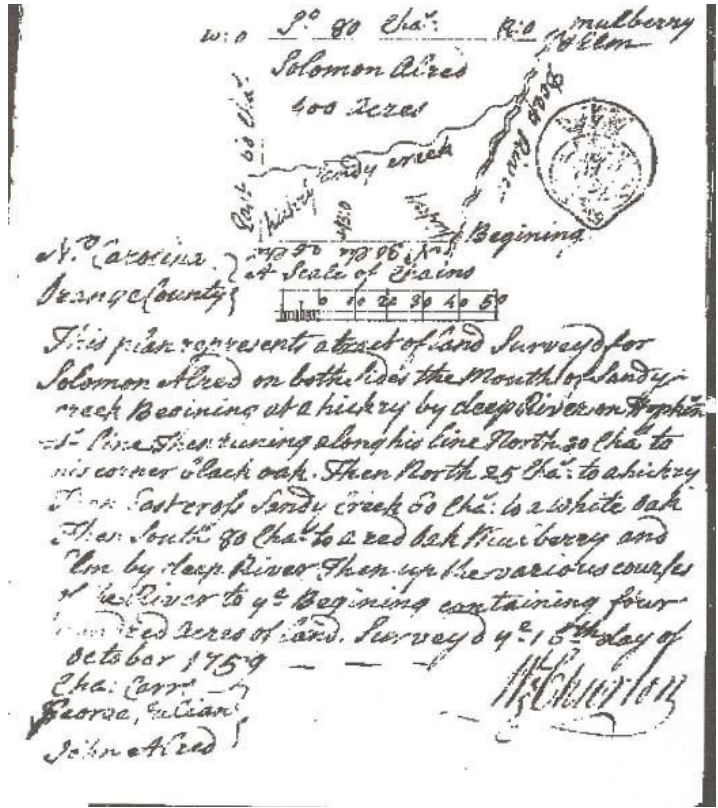 W: O So 80 Cha: R: O mulberry
& Elm
Solomon Alred
400 Acres
Deep River
East 60 Cha:
Sandy creek
hickry
Begining
No Carolina
A Scale of Chains
Orange County
10 20 30 40 50
This plan represents a tract of land Surveyd for
Solomon Alred on both sides the Mouth of Sandy
creek Begining at a hickry by deep River on Hopkin
s line Then runing along his line North 30 Cha: to
his corner black oak. Then North 25 Cha: to a hickry
Then East cross Sandy Creek 60 Cha: to a white oak
Then South 80 Cha: to a red oak Mulberry and
Elm by deep River Then up the various courses
of the River to ye Begining containing four
hundred Acres of land. Surveyd ye 15th day of
October 1759
Cha: Carr
George Julian
John Alred
Wm Churton